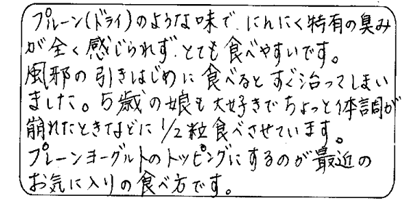 プルーン(ドライ)のような味で、にんにく特有の臭み
が全く感じられず、とても食べやすいです。
風邪の引きはじめに食べるとすぐ治ってしまい
ました。5歳の娘も大好きでちょっと体調が
崩れたときなどに1/2粒食べさせています。
プレーンヨーグルトのトッピングにするのが最近の
お気に入りの食べ方です。